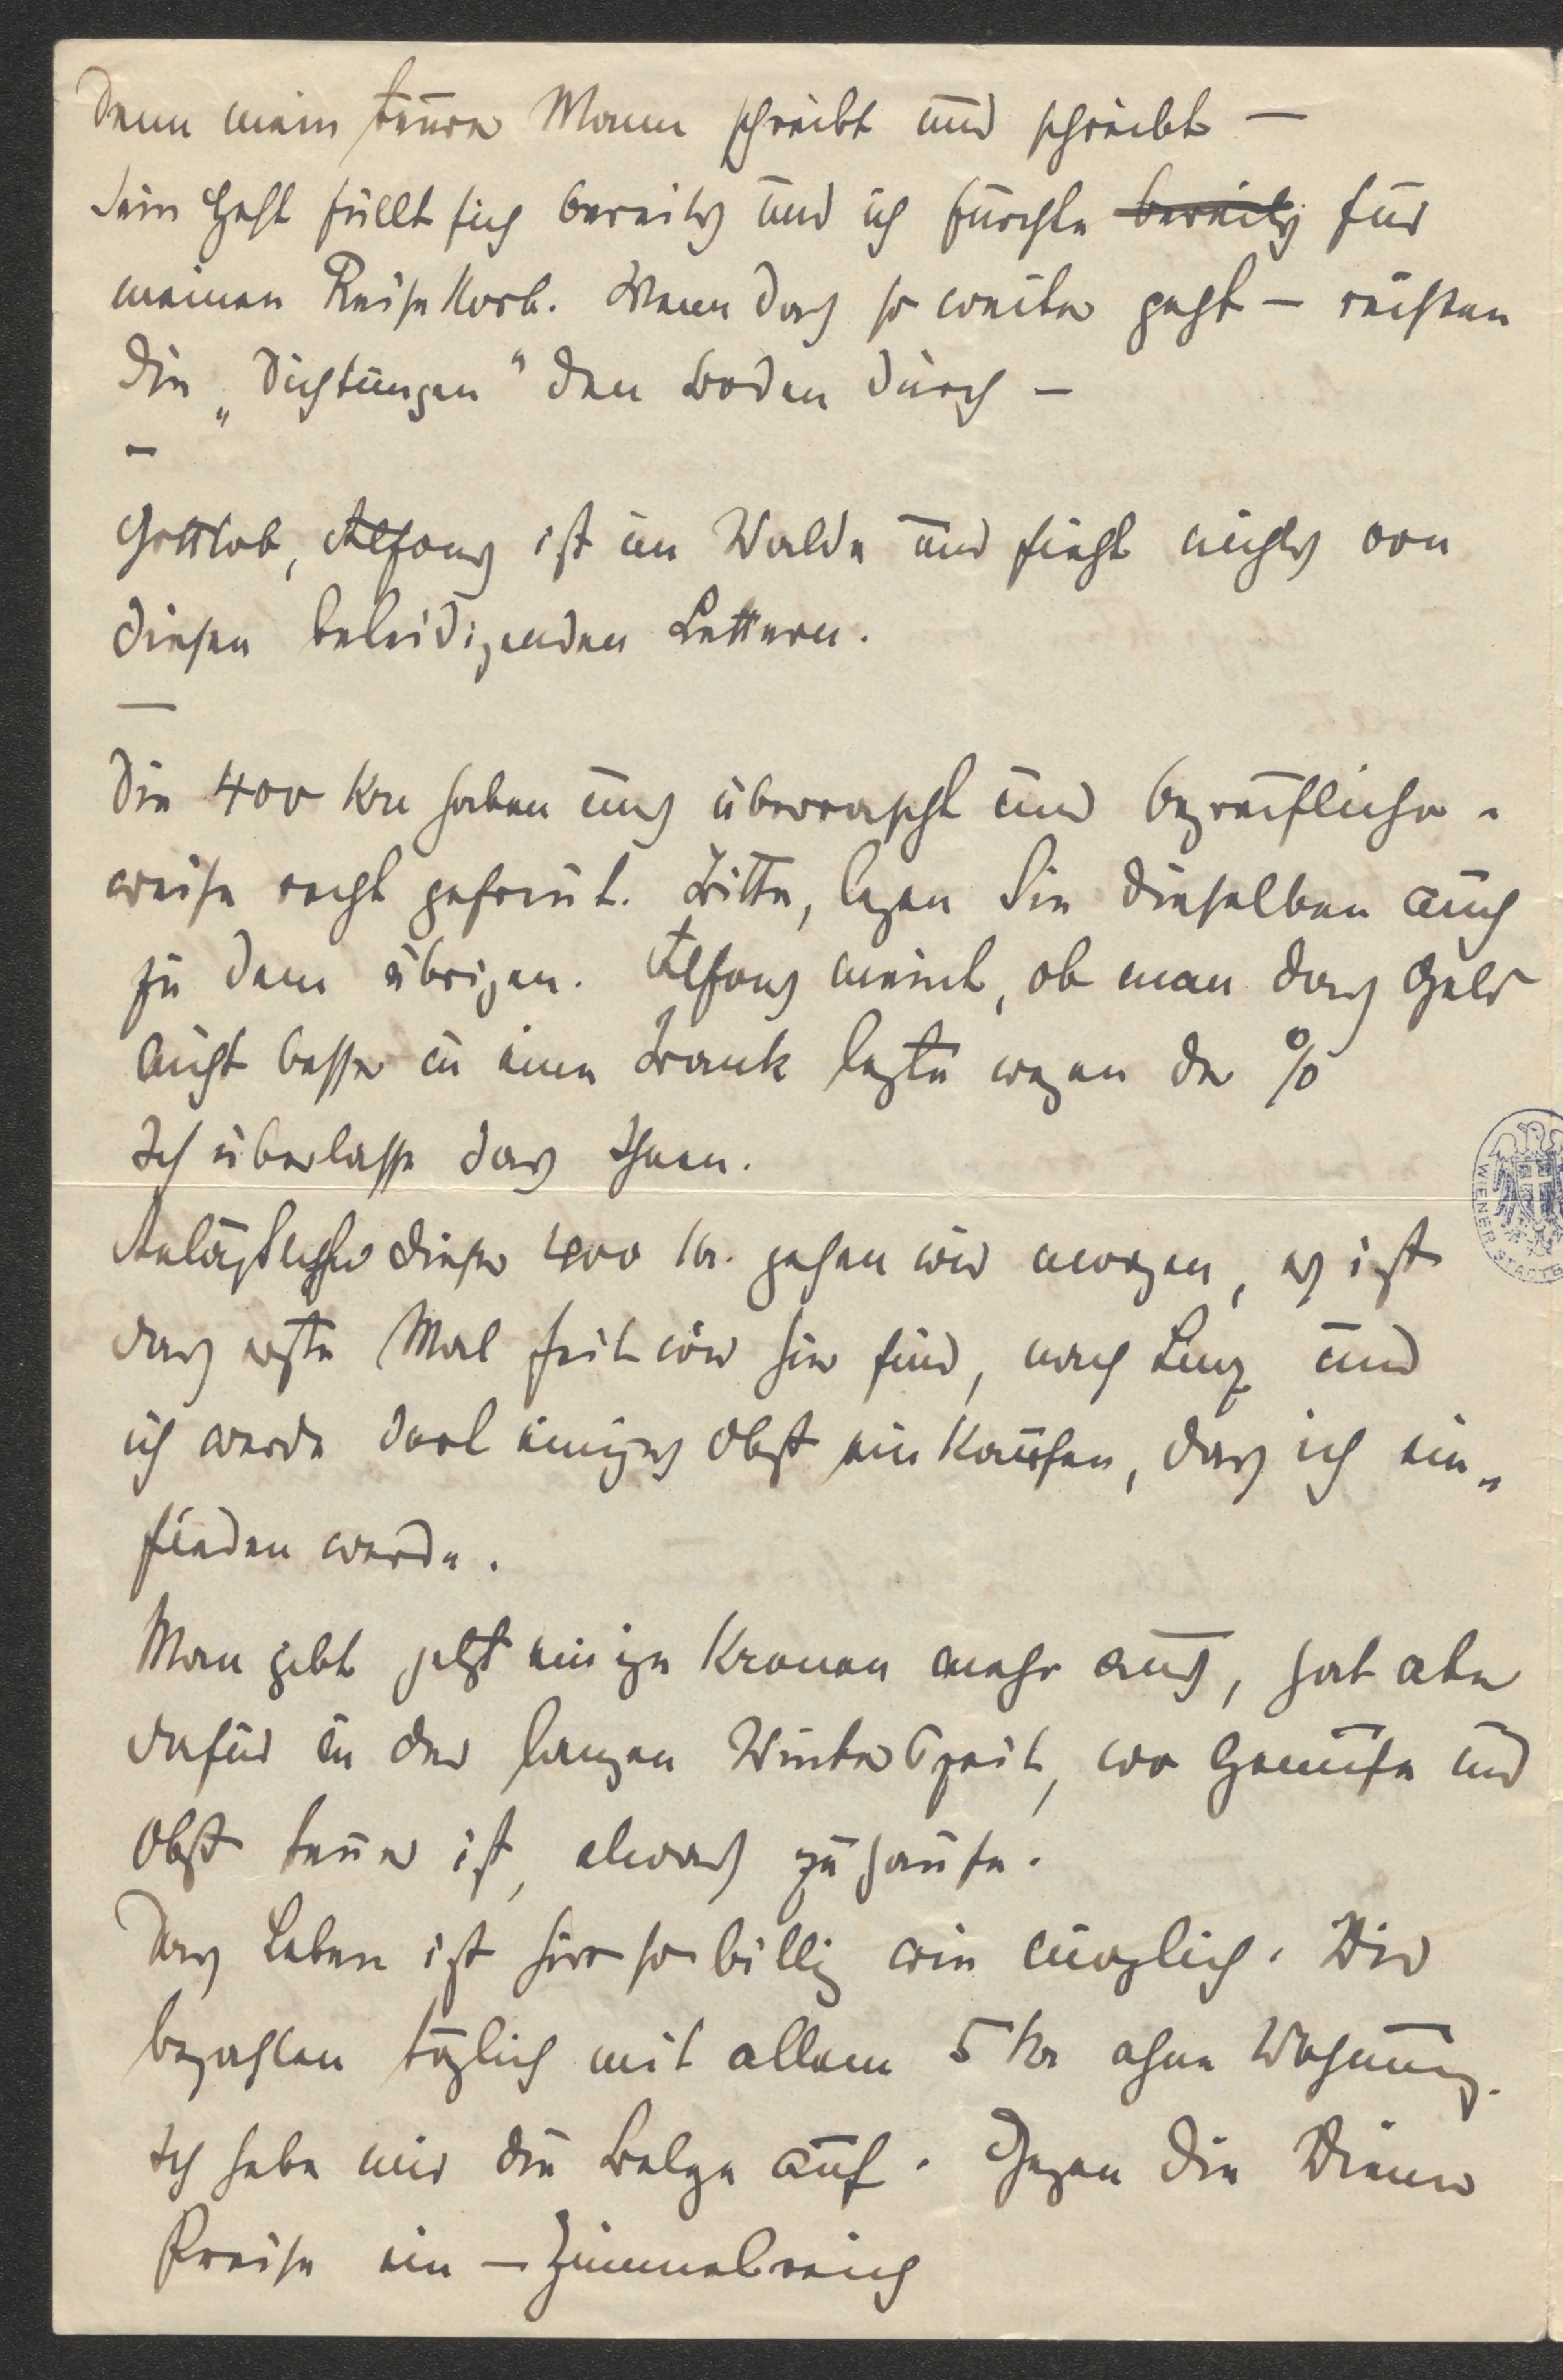 Denn mein teurer Mann schreibt und schreibt —
Sein Heft füllt sich bereits und ich fürchte bereits für
meinen Reisekorb. Wenn das so weiter geht — reißen
die „Dichtungen" den Boden durch —
—
Gottlob, Alfons ist im Walde und sieht nichts von
diesen beleidigenden Lettern.
—
Die 400 Kr haben uns überrascht und begreiflicher-
weise recht gefreut. Bitte, legen Sie dieselben auch
zu dem übrigen. Alfons meint, ob man das Geld
nicht besser in eine Bank legte wegen der %
Ich überlasse das Ihnen.
Anläßlich dieser 400 Kr. gehen wir morgen, es ist
das erste Mal seit wir hier sind, nach Linz und
ich werde dort einiges Obst einkaufen, das ich ein-
sieden werde.
Man gibt jetzt einige Kronen mehr aus, hat aber
dafür in der langen Winterszeit, wo Gemüse und
Obst teuer ist, etwas zuhause.
Das Leben ist hier so billig wie möglich. Wir
bezahlen täglich mit allem 5 Kr ohne Wohnung.
Ich hebe mir die Belege auf. Gegen die Wiener
Preise ein — Himmelreich
WIENER STADT